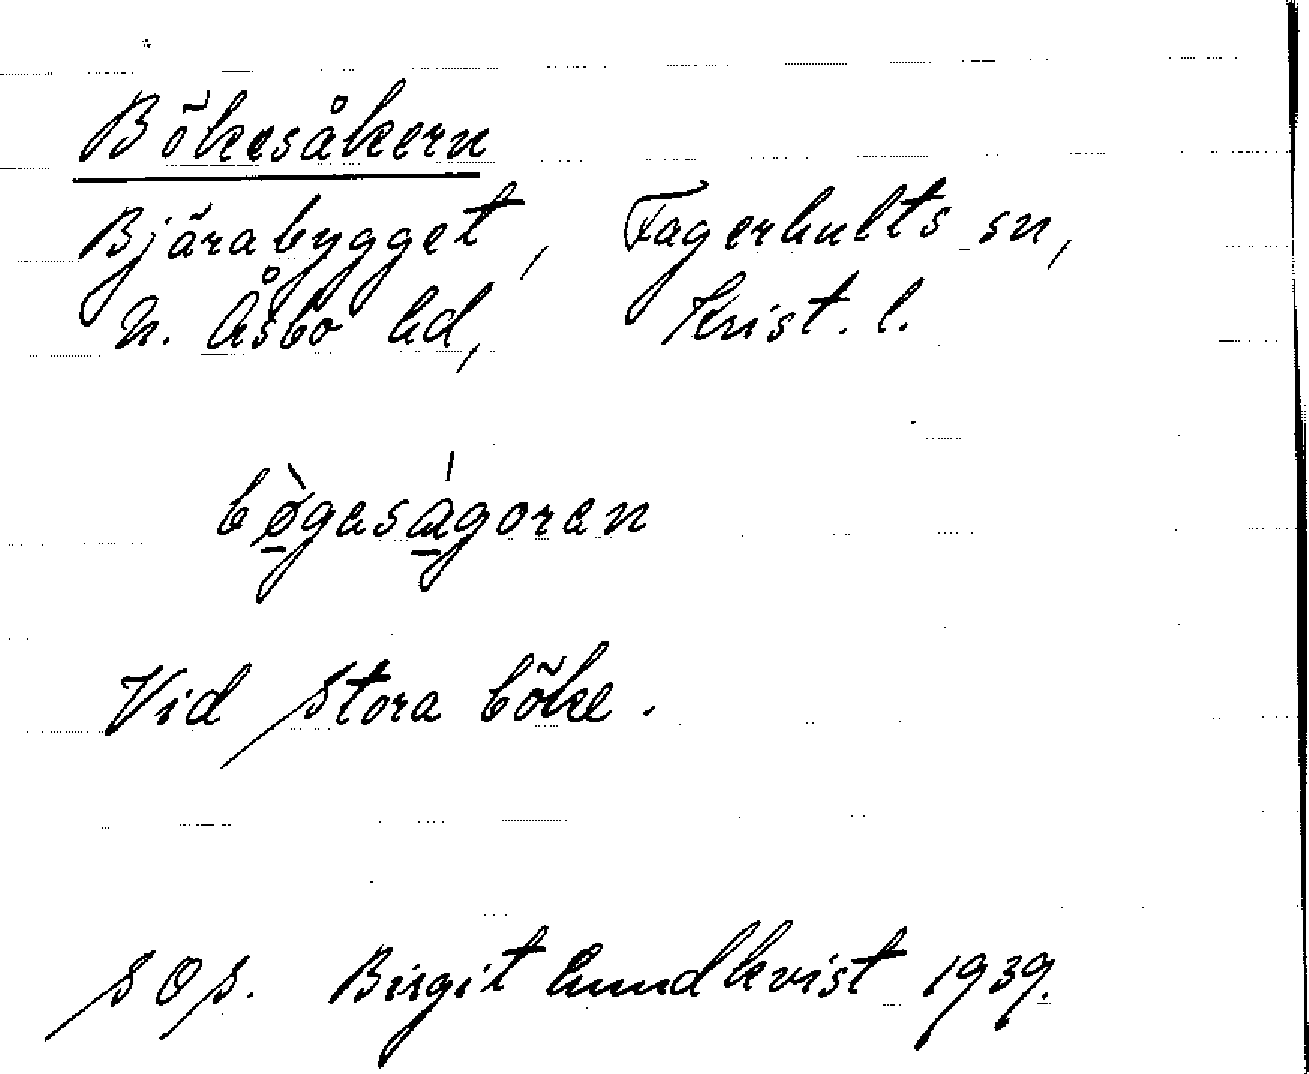 Bökesåkern
Bjärabygget, Fagerhults sn,
N. Åsbo hd, Krist. l.
bø̀geságoren
Vid Stora böke.
SOS. Birgit Lundkvist 1939.